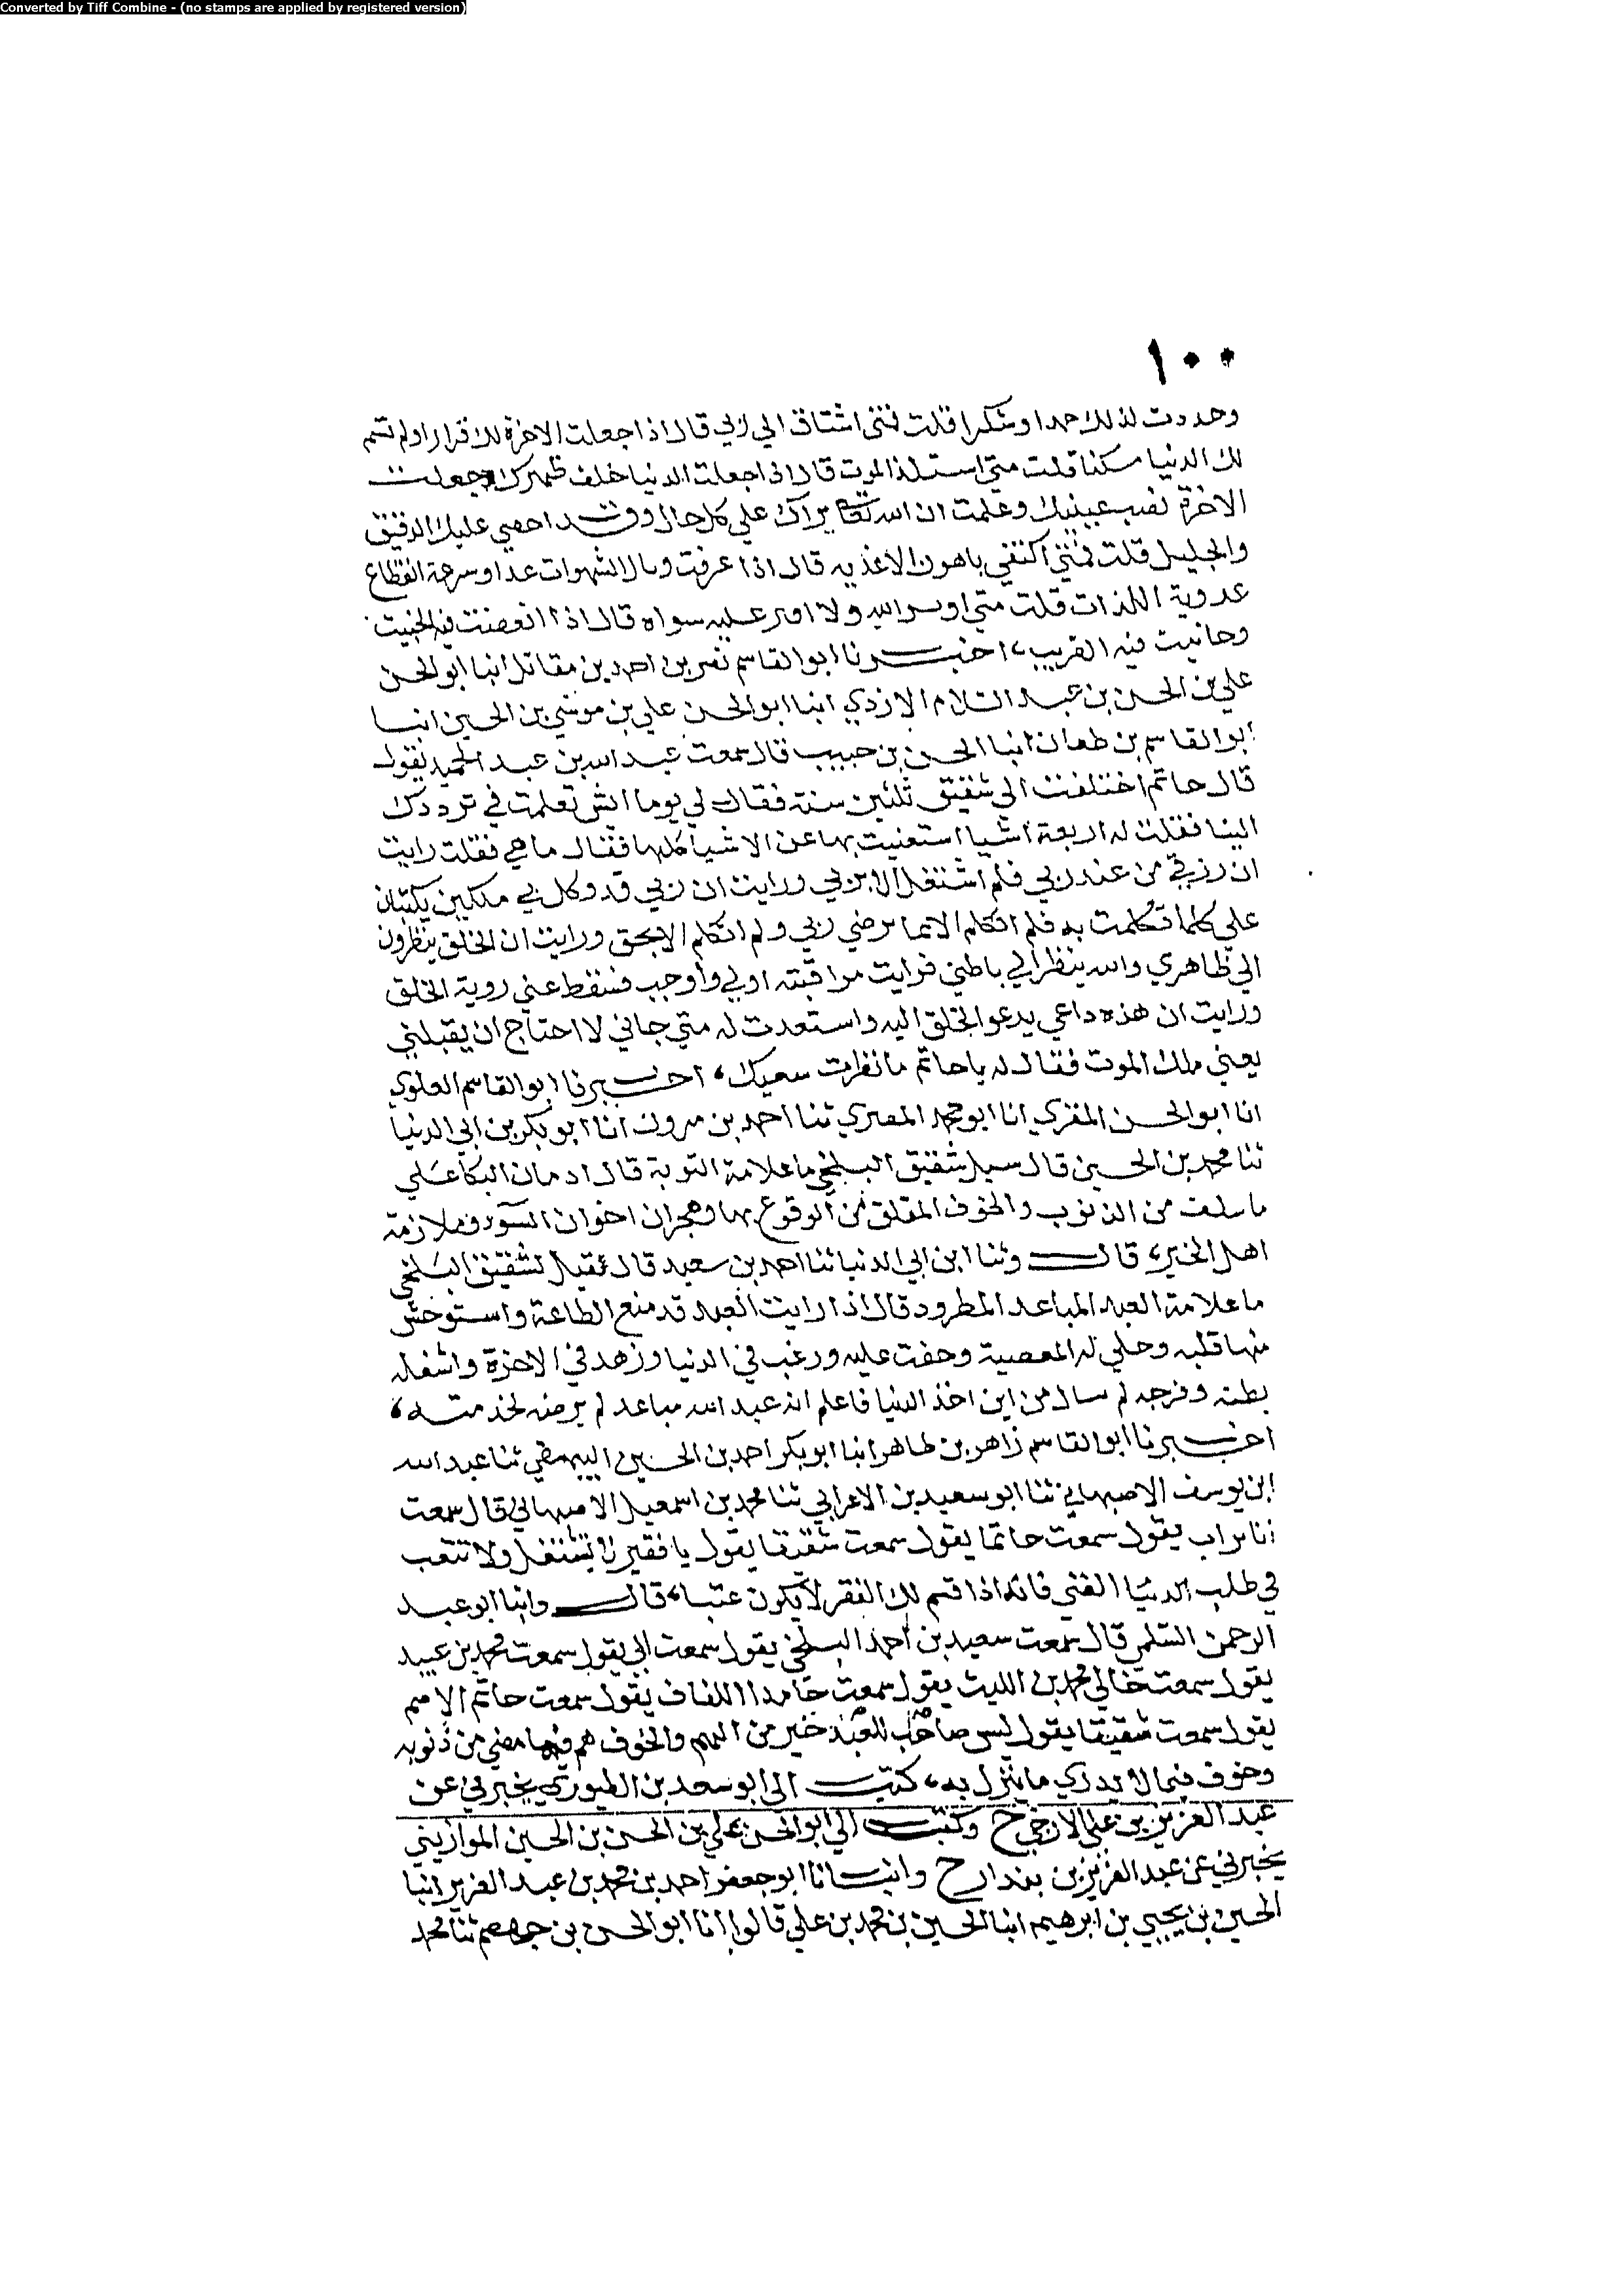 Converted by Tiff Combine - (no stamps are applied by registered version)
١٠٠
وحددت لذلك حمدا وشكرا قلت فمتى اشتاق الي ربي قال اذا جعلت الاخرة لك قرارا ولم تسم
لك الدنيا مسكنا قلت متي استلذ الموت قال اذا جعلت الدنيا خلف ظهرك وجعلت
الاخرة نصب عينيك وعلمت ان الله تعا يراك علي كل حال وقد احصي عليك الدقيق
والجليل قلت فمتي اكتفي باهون الاغذيه قال اذا عرفت وبال الشهوات غدا وسرعة انقطاع
عدوبة اللذات قلت متي اوثر الله ولا اوثر عليه سواه قال اذا ابغضت فيه الحبيب
وجانبت فيه القريب، اخبرنا ابو القاسم نصر بن احمد بن مقاتل انبا ابو الحسن
علي بن الحسن بن عبد السلام الازدي انبا ابو الحسن علي بن موسي بن الحسين انبا
ابو القاسم بن طعان انبا الحسن بن حبيب قال سمعت عبد الله بن عبد الحميد يقول
قال حاتم اختلفت الي شقيق ثلثين سنة فقال لي يوما ايش تعلمت في ترددك
الينا فقلت له اربعة اشيا استغنيت بها عن الاشيا كلها فقال ما هي فقلت رايت
ان رزقي من عند ربي فلم اشتغل الا بربي ورايت ان ربي قد وكل بي ملكين يكتبان
علي كلما تكلمت به فلم اتكلم الا بما يرضي ربي ولم اتكلم الا بحق ورايت ان الخلق ينظرون
الي ظاهري والله ينظر الي باطني فرايت مراقبته اولي واوجب فسقط عني روية الخلق
ورايت ان هذه داعي يدعو الخلق اليه واستعدت له متي جاني لا احتاج ان يقبلني
يعني ملك الموت فقال له يا حاتم ما نظرت سعيك، اخبرنا ابو القاسم العلوي
انا ابو الحسن المقري انا ابو محمد المصري ثنا احمد بن مروان انا ابو بكر بن ابي الدنيا
ثنا محمد بن الحسين قال سيل شقيق البلخي ما علامة التوبة قال ادمان البكا علي
ما سلف من الذنوب والخوف المقلق من الوقوع بها وهجران اخوان السوء وملازمة
اهل الخير، قال وثنا ابن ابي الدنيا ثنا احمد بن سعيد قال قيل لشقيق البلخي
ما علامة العبد المباعد المطرود قال اذا رايت العبد قد منع الطاعة واستوحش
منها قلبه وحلي له المعصية وخفت عليه ورغب في الدنيا وزهد في الاخرة واشغله
بطنه وفرجه لم يبال من اين اخذ الدنيا فاعلم انه عبد الله مباعد لم يرضه لخدمته،
اخبرنا ابو القاسم زاهر بن طاهر انبا ابو بكر احمد بن الحسين البيهقي ثنا عبد الله
ابن يوسف الاصبهاني ثنا ابو سعيد بن الاعرابي ثنا محمد بن اسمعيل الاصبهاني قال سمعت
ابا تراب يقول سمعت حاتما يقول سمعت شقيقا يقول يا فقير لا تشتغل ولا تتعب
في طلب الدنيا الغني فانه اذا قسم لك الفقر لا تكون غنيا، قال وانبا ابو عبد
الرحمن السلمي قال سمعت سعيد بن احمد البلخي يقول سمعت ابي يقول سمعت محمد بن عبيد
يقول سمعت خالي محمد بن الليث يقول سمعت حامدا اللفاف يقول سمعت حاتم الاصم
يقول سمعت شقيقا يقول ليس صاحب للعبد خير من الهم والخوف هم فيما مضي من ذنوبه
وخوف فيما لا يدري ما ينزل به، كتب الي ابو سعد بن الطيوري يخبرني عن
عبد العزيز بن علي الازجي ح وكتب الي ابو الحسن علي بن الحسن بن الحسين الموازيني
يخبرني عن عبد العزيز بن بندار ح وانبانا ابو جعفر احمد بن محمد بن عبد العزيز انبا
الحسين بن يحيي بن ابرهيم انبا الحسين بن محمد بن علي قالوا انا ابو الحسن بن جهضم ثنا محمد